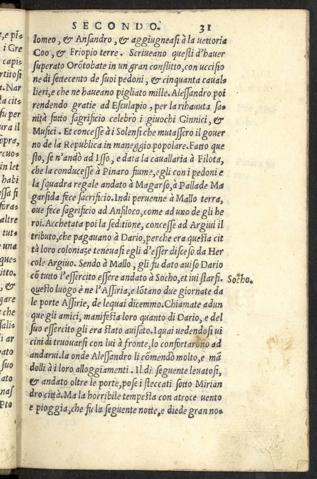 SECONDO. 31
lomeo, & Ansandro, & aggiugneasi à la vettoria
Coo, & Friopio terre. Scriueano questi d'hauer
superato Orõtobate in un gran conflitto, con uccisio
ne di settecento de suoi pedoni, & cinquanta caual-
lieri, e che ne haueano pigliato mille. Alessandro poi
rendendo gratie ad Esculapio, per la rihauuta sa-
nità fatto sagrificio celebrò i giuochi Ginnici, &
Musici. Et concesse à i Solensi che mutassero il gouer
no de la Republica in maneggio popolare. Fatto que
sto, se n'andò ad Isso, e data la cauallaria à Filota,
che la conducesse à Pinaro fiume, egli con i pedoni e
la squadra regale andato à Magarso, à Pallade Ma
garsida fece sacrificio. Indi peruenne à Mallo terra,
oue fece sagrificio ad Anfiloco, come ad uno de gli he
roi. Acchetata poi la seditione, concesse ad Argiui il
tributo, che pagauano à Dario, perche era questa cit
tà loro colonia: e teneuasi egli d'esser disceso da Her
cole Argiuo. Sendo à Mallo, gli fu dato auiso Dario
cõ tutto l'essercito essere andato à Socho, et iui starsi. Socho.
questo luogo è ne l'Assiria, e lõtano due giornate da
le porte Assirie, de lequai dicemmo. Chiamate adun
que gli amici, manifesta loro quanto di Dario, e del
suo essercito gli era stato auisato. Iquai uedendosi ui
cini di truouarsi con lui à fronte, lo confortarono ad
andarui. la onde Alessandro li cõmendò molto, e mã
dolli à i loro alloggiamenti. Il dì seguente leuatosi,
& andato oltre le porte, pose i steccati sotto Mirian
dro città. Ma la horribile tempesta con atroce uento
e pioggia, che fu la seguente notte, e diede gran no-